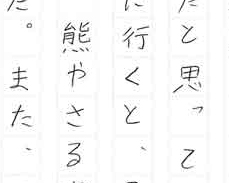 たと思って
に行くと、
熊やさる
た。また、